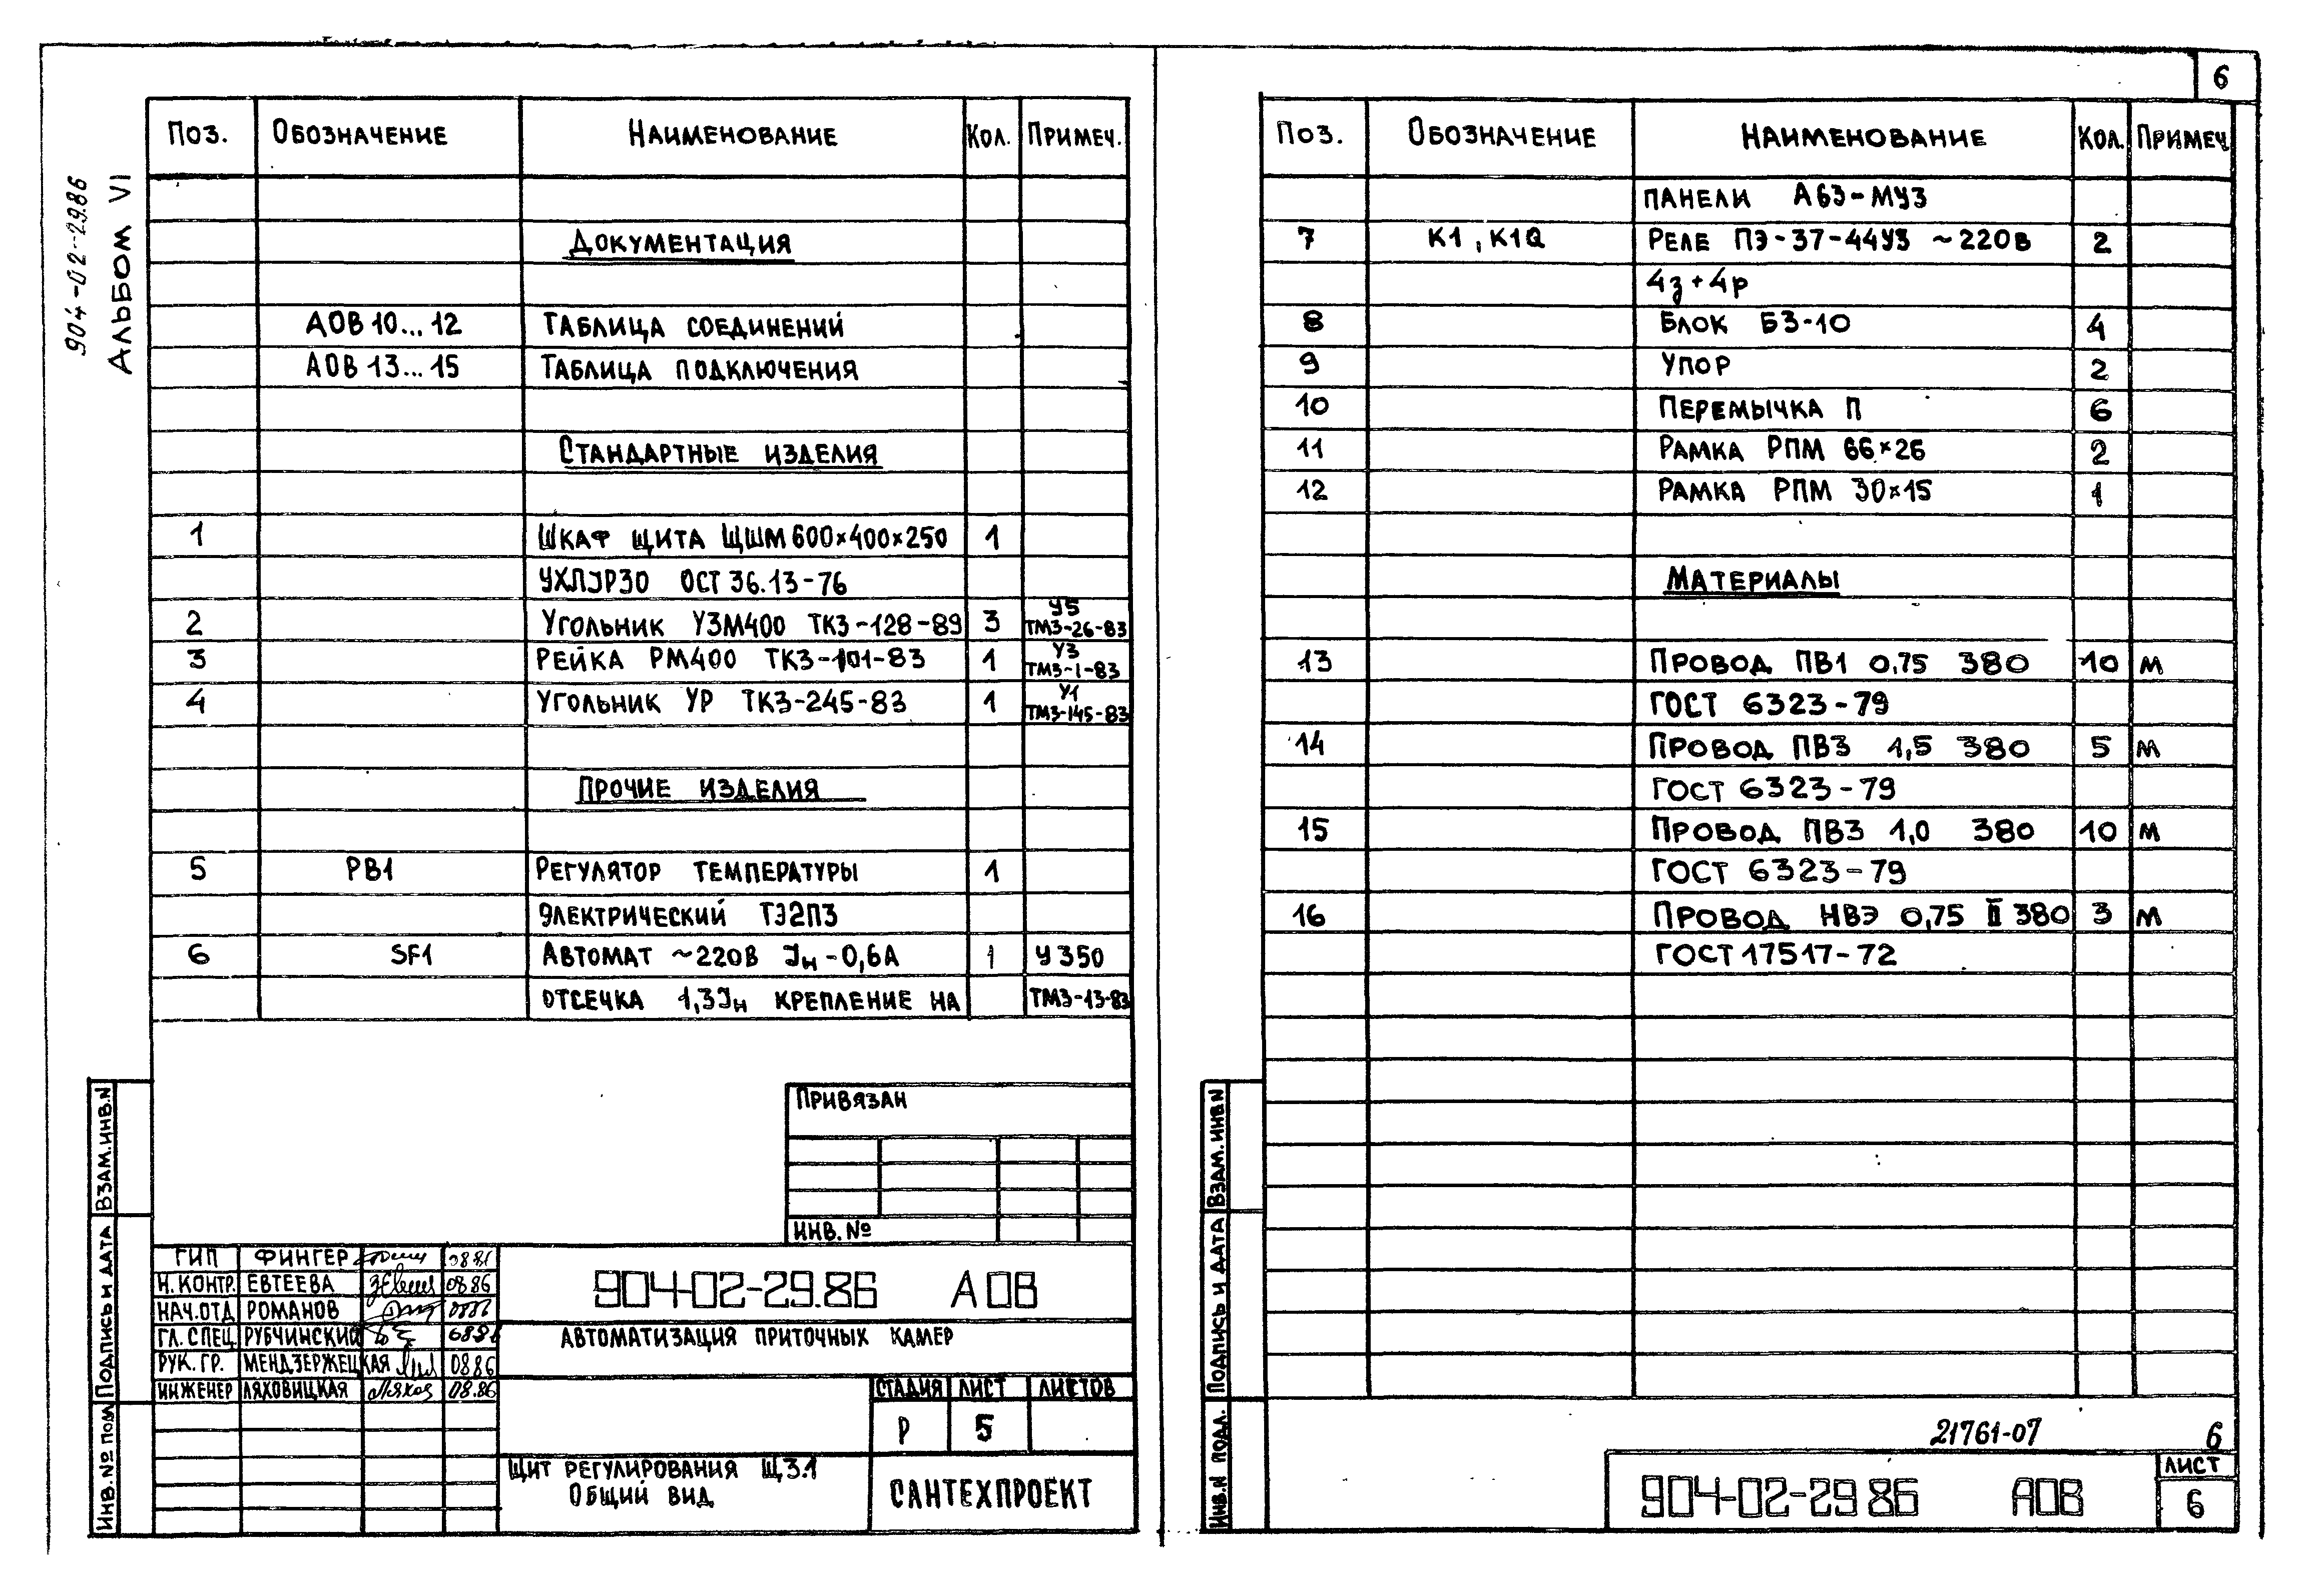 6
904-02-29.86
АЛЬБОМ VI
ПОЗ. ОБОЗНАЧЕНИЕ НАИМЕНОВАНИЕ КОЛ. ПРИМЕЧ.
ДОКУМЕНТАЦИЯ
АОВ 10...12 ТАБЛИЦА СОЕДИНЕНИЙ
АОВ 13...15 ТАБЛИЦА ПОДКЛЮЧЕНИЯ
СТАНДАРТНЫЕ ИЗДЕЛИЯ
1 ШКАФ ЩИТА ЩШМ 600×400×250 1
ОСТ 36.13-76
2 УГОЛЬНИК УЗМ400 ТК3-128-89 3 У5 ТМ3-26-83
3 РЕЙКА РМ400 ТК3-101-83 1 У3 ТМ3-1-83
4 УГОЛЬНИК УР ТК3-245-83 1 У1 ТМ3-145-83
ПРОЧИЕ ИЗДЕЛИЯ
5 РВ1 РЕГУЛЯТОР ТЕМПЕРАТУРЫ 1
ЭЛЕКТРИЧЕСКИЙ ТЭ2П3
6 SF1 АВТОМАТ ~220В Jн-0,6А 1 У350
ОТСЕЧКА 1,3Jн КРЕПЛЕНИЕ НА ТМ3-13-83
ПРИВЯЗАН
ИНВ. №
ВЗАМ. ИНВ. N
ПОДПИСЬ И ДАТА
ИНВ. №
ГИП ФИНГЕР
Н. КОНТР. ЕВТЕЕВА 08 86
НАЧ. ОТД РОМАНОВ
ГЛ. СПЕЦ РУБЧИНСКИЙ
РУК. ГР. МЕНДЗЕРЖЕЦКАЯ 08 86
ИНЖЕНЕР ЛЯХОВИЦКАЯ 08.86
904-02-29.86 АОВ
АВТОМАТИЗАЦИЯ ПРИТОЧНЫХ КАМЕР
СТАДИЯ ЛИСТ ЛИСТОВ
Р 5
ЩИТ РЕГУЛИРОВАНИЯ Щ3.1
ОБЩИЙ ВИД
САНТЕХПРОЕКТ
ПОЗ. ОБОЗНАЧЕНИЕ НАИМЕНОВАНИЕ КОЛ. ПРИМЕЧ
ПАНЕЛИ А63-МУ3
7 К1, К1Q РЕЛЕ ПЭ-37-44У3 ~220В 2
4з+4р
8 БЛОК БЗ-10 4
9 УПОР 2
10 ПЕРЕМЫЧКА П 6
11 РАМКА РПМ 66×26 2
12 РАМКА РПМ 30×15 1
МАТЕРИАЛЫ
13 ПРОВОД ПВ1 0,75 380 10 м
ГОСТ 6323-79
14 ПРОВОД ПВ3 1,5 380 5 м
ГОСТ 6323-79
15 ПРОВОД ПВ3 1,0 380 10 м
ГОСТ 6323-79
16 ПРОВОД НВЭ 0,75 II 380 3 м
ГОСТ 17517-72
ВЗАМ. ИНВ. N
ПОДПИСЬ И ДАТА
ИНВ. N ПОДЛ.
21761-07 6
904-02-29 86 АОВ
ЛИСТ
6